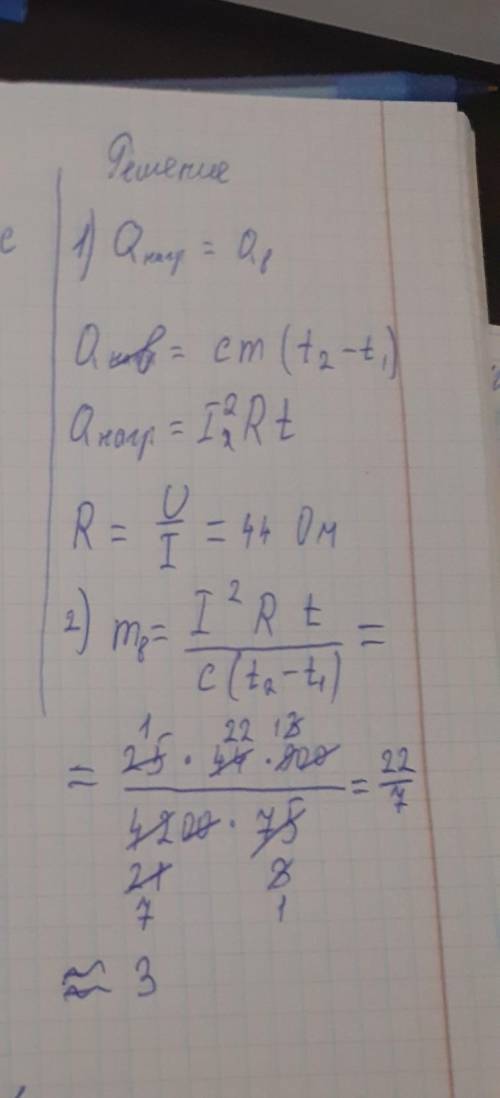 Решение
с
1) Qнагр = Qв
Qнов = cm (t₂ - t₁)
Qнагр = I₂² R t
R = U/I = 44 Ом
2) mв = I² R t / c (t₂ - t₁) =
1 22 18
= 25 · 44 · 900 / 4200 · 75 = 22/7
21 3
7 1
≈ 3